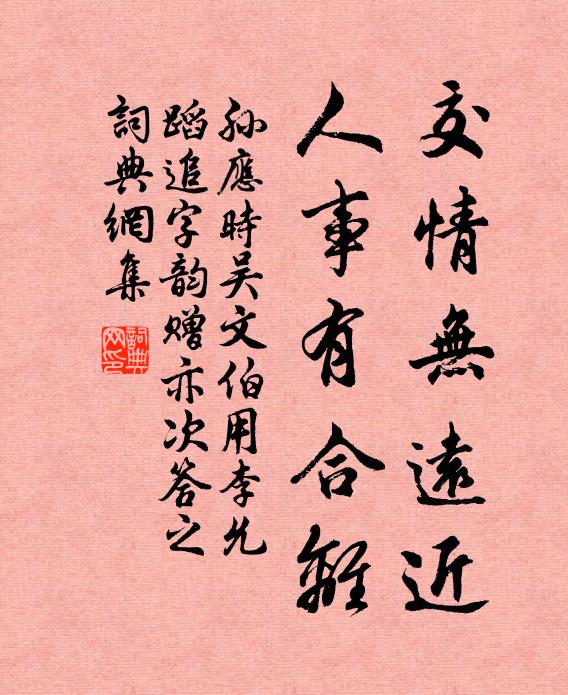 交情無遠近
人事有合離
孙應時吴文伯用李允
蹈追字韵赠亦次答之
詞典網集
詞典
网印